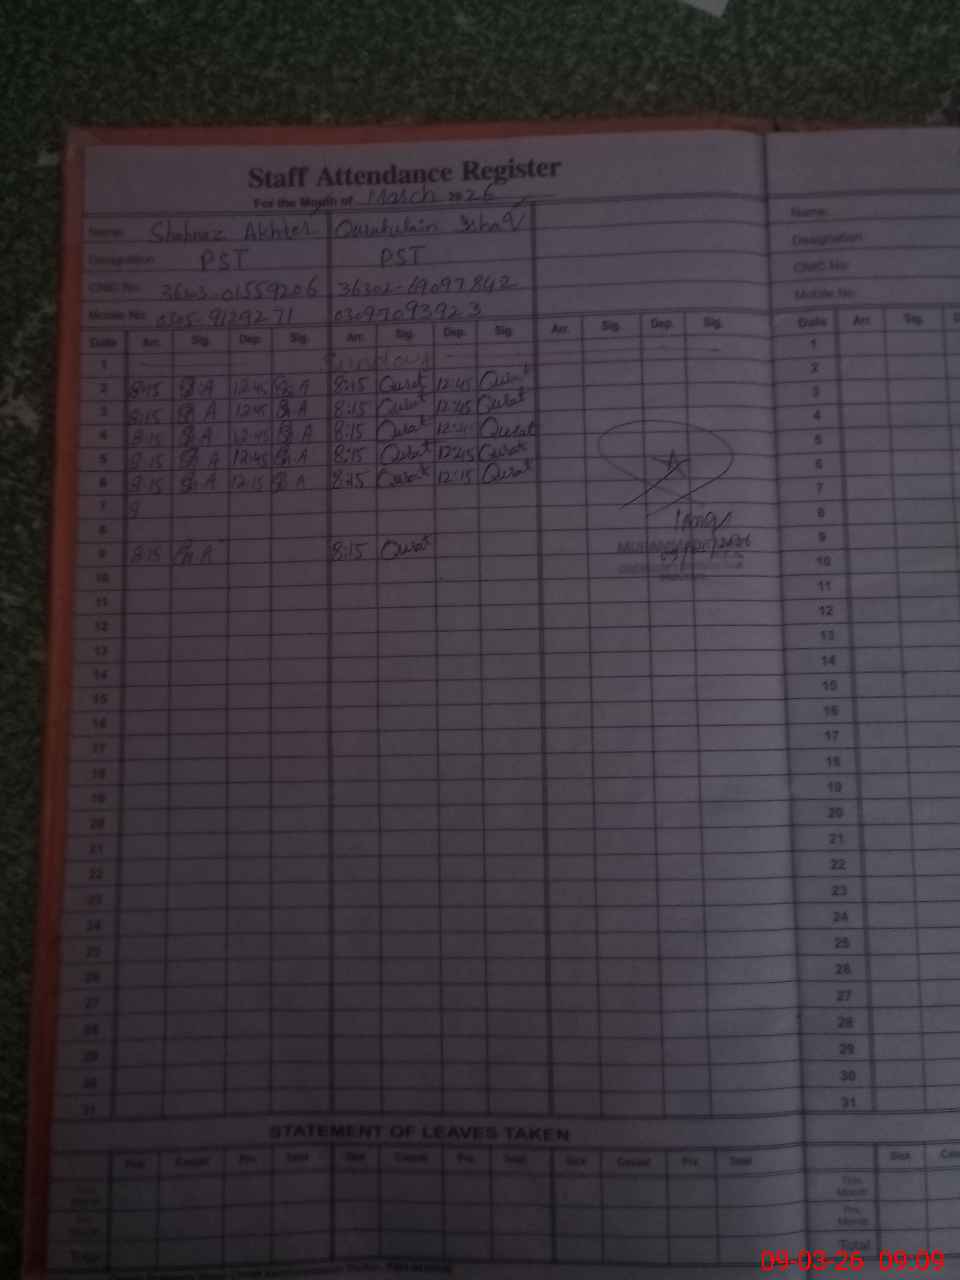 Staff Attendance Register
For the Month of March 2026
Name: Shahnaz Akhter Quratulain Ishaq Name:
Designation PST PST Designation
CNIC No. 36303-01559206 36302-6909784 2 CNIC No.
Mobile No. 0305-9129271 03097093923 Mobile No.
Date Arr. Sig. Dep. Sig. Arr. Sig. Dep. Sig. Arr. Sig. Dep. Sig. Date Arr. Sig.
1 Sunday 1
2 8:15 Sh A 12:45 Sh A 8:15 Qurat 12:45 Qurat 2
3 8:15 Sh A 12:45 Sh A 8:15 Qurat 12:45 Qurat 3
4 8:15 Sh A 12:45 Sh A 8:15 Qurat 12:45 Qurat 4
5 8:15 Sh A 12:45 Sh A 8:15 Qurat 12:45 Qurat 5
6 8:15 Sh A 12:15 Sh A 8:15 Qurat 12:15 Qurat 6
7 8 7
8 8
9 8:15 Sh A 8:15 Qurat 9
10 10
11 11
12 12
13 13
14 14
15 15
16 16
17 17
18 18
19 19
20 20
21 21
22 22
23 23
24 24
25 25
26 26
27 27
28 28
29 29
30 30
31 31
STATEMENT OF LEAVES TAKEN
Sick Casual Prv. Total Sick Casual Prv. Total Sick Casual Prv. Total Sick
This Month This Month
Prv. Month Prv. Month
Total Total
09-03-26 09:09